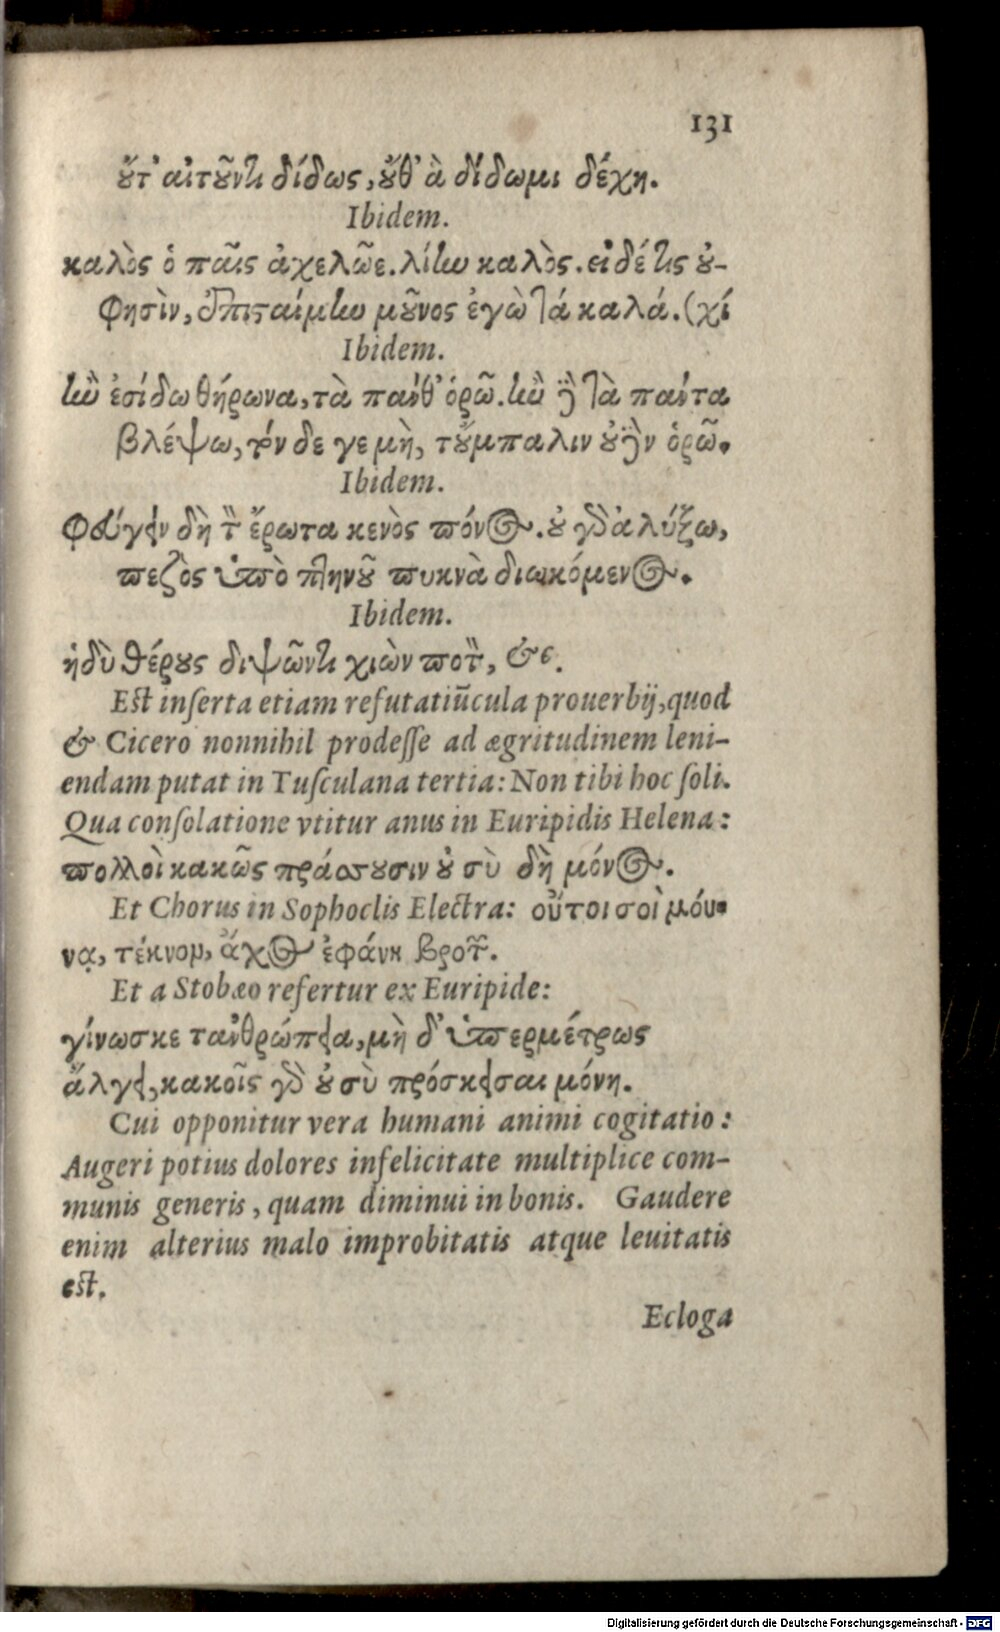 131
οὔτ' αἰτοῦντι δίδως, οὔθ' ἃ δίδωμι δέχῃ.
Ibidem.
καλὸς ὁ παῖς ἀχελῶε. λίην καλὸς. εἰ δέ τις οὐ-
φησὶν, ἐπισταίμην μοῦνος ἐγὼ τά καλά. (χί
Ibidem.
ἢν ἐσίδω θήρωνα, τὰ πάνθ' ὁρῶ. ἢν ἢ τὰ πάντα
βλέψω, τόν δε γε μὴ, τοὔμπαλιν οὐδὲν ὁρῶ.
Ibidem.
Φεύγειν δὴ τὸν ἔρωτα κενὸς πόνος. οὐ γὰρ ἀλύξω,
πεζὸς ὑπὸ πτηνοῦ πυκνὰ διωκόμενος.
Ibidem.
ἡδὺ θέρους διψῶντι χιὼν ποτὸν, &c.
Est inserta etiam refutatiũcula prouerbij, quod
& Cicero nonnihil prodesse ad ægritudinem leni-
endam putat in Tusculana tertia: Non tibi hoc soli.
Qua consolatione vtitur anus in Euripidis Helena:
πολλοὶ κακῶς πράσσουσιν οὐ σὺ δὴ μόνος.
Et Chorus in Sophoclis Electra: οὔτοι σοὶ μόυ-
νᾳ, τέκνον, ἄχος ἐφάνη βροτῶν.
Et a Stobæo refertur ex Euripide:
γίνωσκε τανθρώπεια, μὴ δ' ὑπερμέτρως
ἄλγει, κακοῖς γὰρ οὐ σὺ πρόσκεισαι μόνη.
Cui opponitur vera humani animi cogitatio:
Augeri potius dolores infelicitate multiplice com-
munis generis, quam diminui in bonis. Gaudere
enim alterius malo improbitatis atque leuitatis
est.
Ecloga
Digitalisierung gefördert durch die Deutsche Forschungsgemeinschaft - DFG